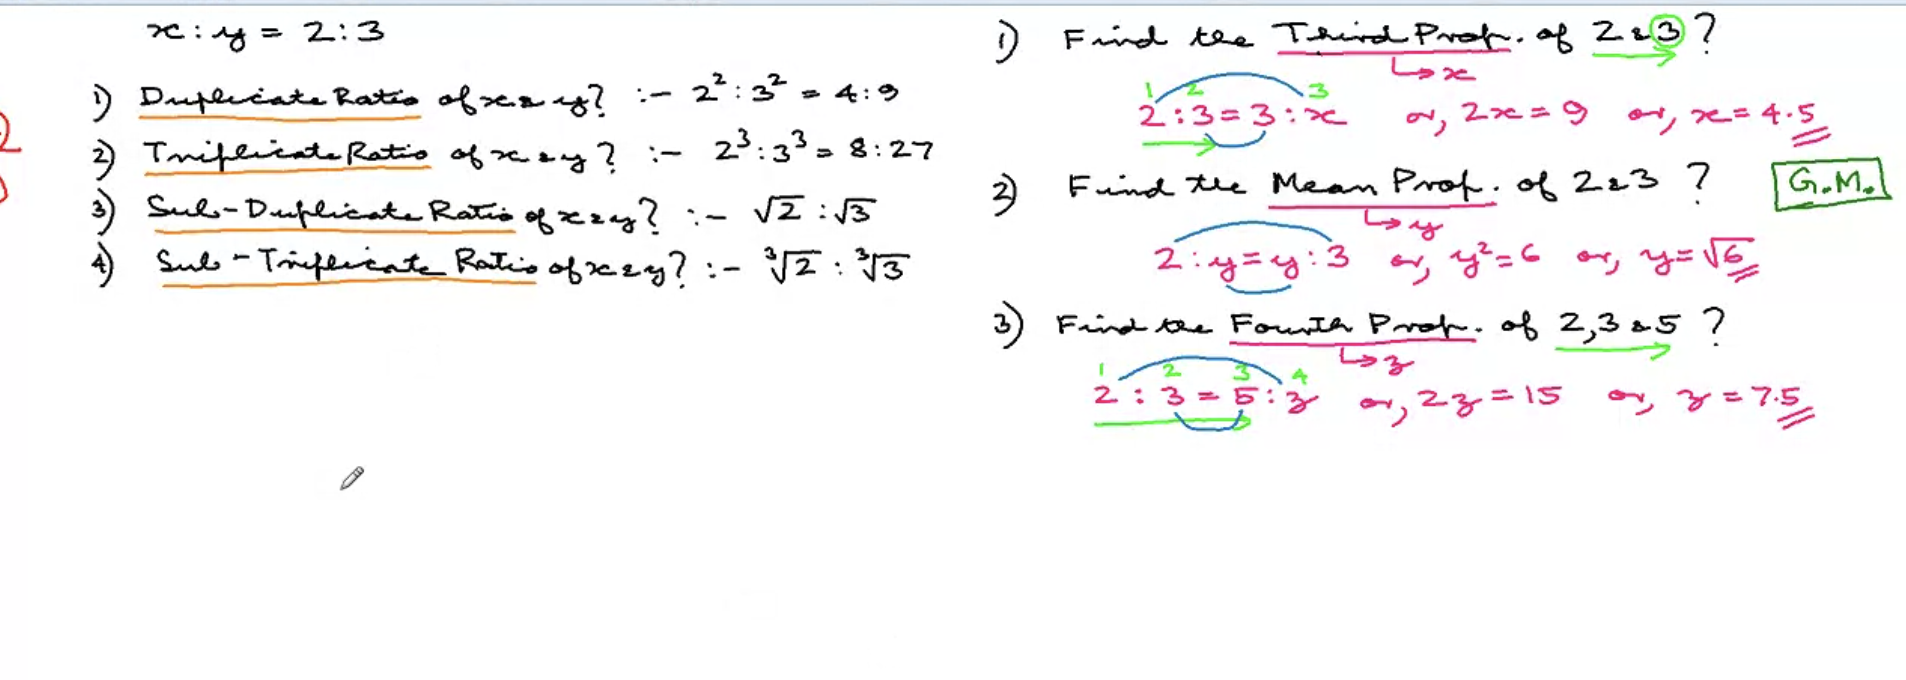 x : y = 2 : 3
1) Duplicate Ratio of x & y? :- 2² : 3² = 4 : 9
2) Triplicate Ratio of x & y? :- 2³ : 3³ = 8 : 27
3) Sub-Duplicate Ratio of x & y? :- √2 : √3
4) Sub-Triplicate Ratio of x & y? :- ³√2 : ³√3
1) Find the Third Prop. of 2 & 3?
↳ x
1 2 3
2 : 3 = 3 : x or, 2x = 9 or, x = 4.5
2) Find the Mean Prop. of 2 & 3 ? G.M.
↳ y
2 : y = y : 3 or, y² = 6 or, y = √6
3) Find the Fourth Prop. of 2, 3 & 5 ?
↳ z
1 2 3 4
2 : 3 = 5 : z or, 2z = 15 or, z = 7.5